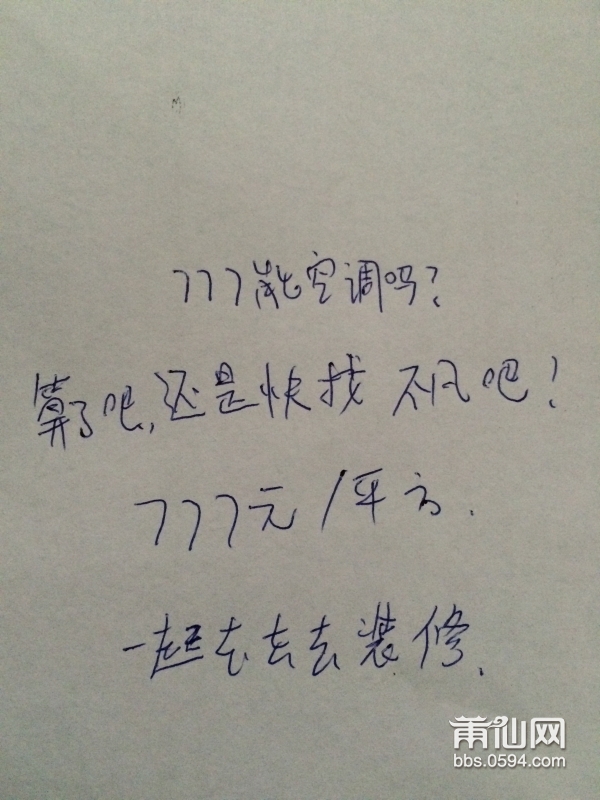 777能空调吗?
算了吧,还是快找不凡吧!
777元/平方.
一起去去去装修.
莆仙网
bbs.0594.com